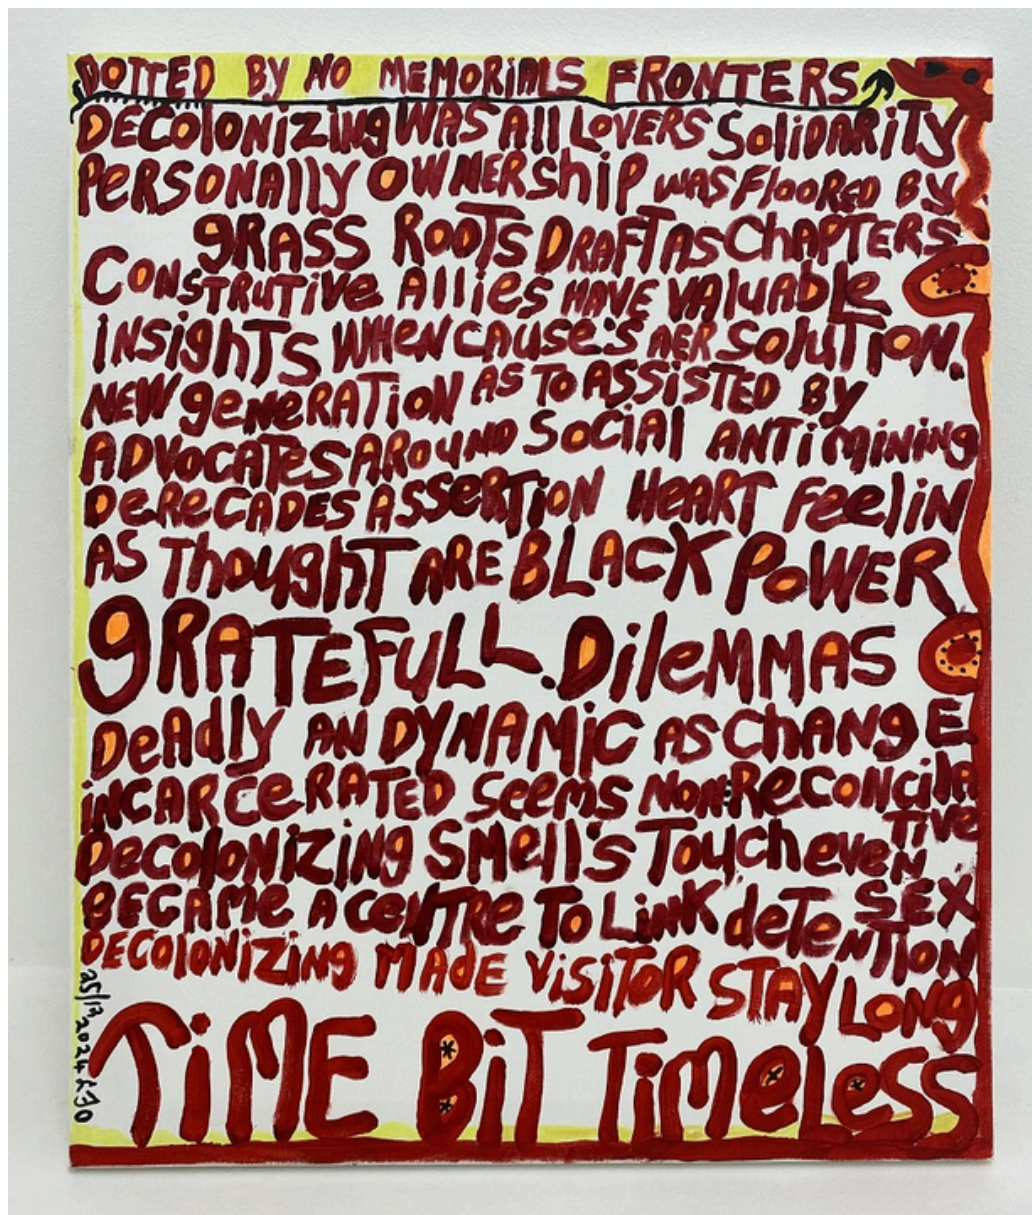 DOTTED BY NO MEMORiALS FRONTERS
DECOlONiZiNg WAS All LOVERS SoliDARiTY
PeRSONAlly OWNERship WAS FlOORED BY
gRASS ROOTS DRAFT AS ChAPTERS
CONSTRUTiVe Allies HAVE VAluAble
iNSighTS WHeN CAuSe's AER SoluTiON.
NEW geNeRATiON AS TO ASSiSTED BY
ADVOCATES AROuND SOCiAl ANTi MiNiNg
DeReCADES ASSeRTiON HeART FeeliN
AS ThOughT ARE BLACK POWER
gRATEFULL. DileMMAS
DeAdly AN DYNAMiC AS ChANgE
iNCARCeRATED SeeMS NON:ReCONCilA
TiVe
DecOlONiZiNg SMell's TOuCh eveN
SEX
BECAMe A CeNTRe TO LiNK deTeNTiON
DECOlONiZiNg MADE ViSiTOR STAY LONg
TiME BiT TiMeLeSS